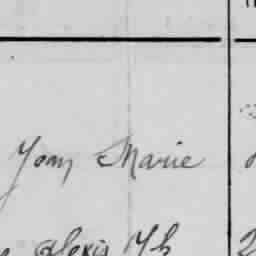 Yoan Marie
Alexis Th